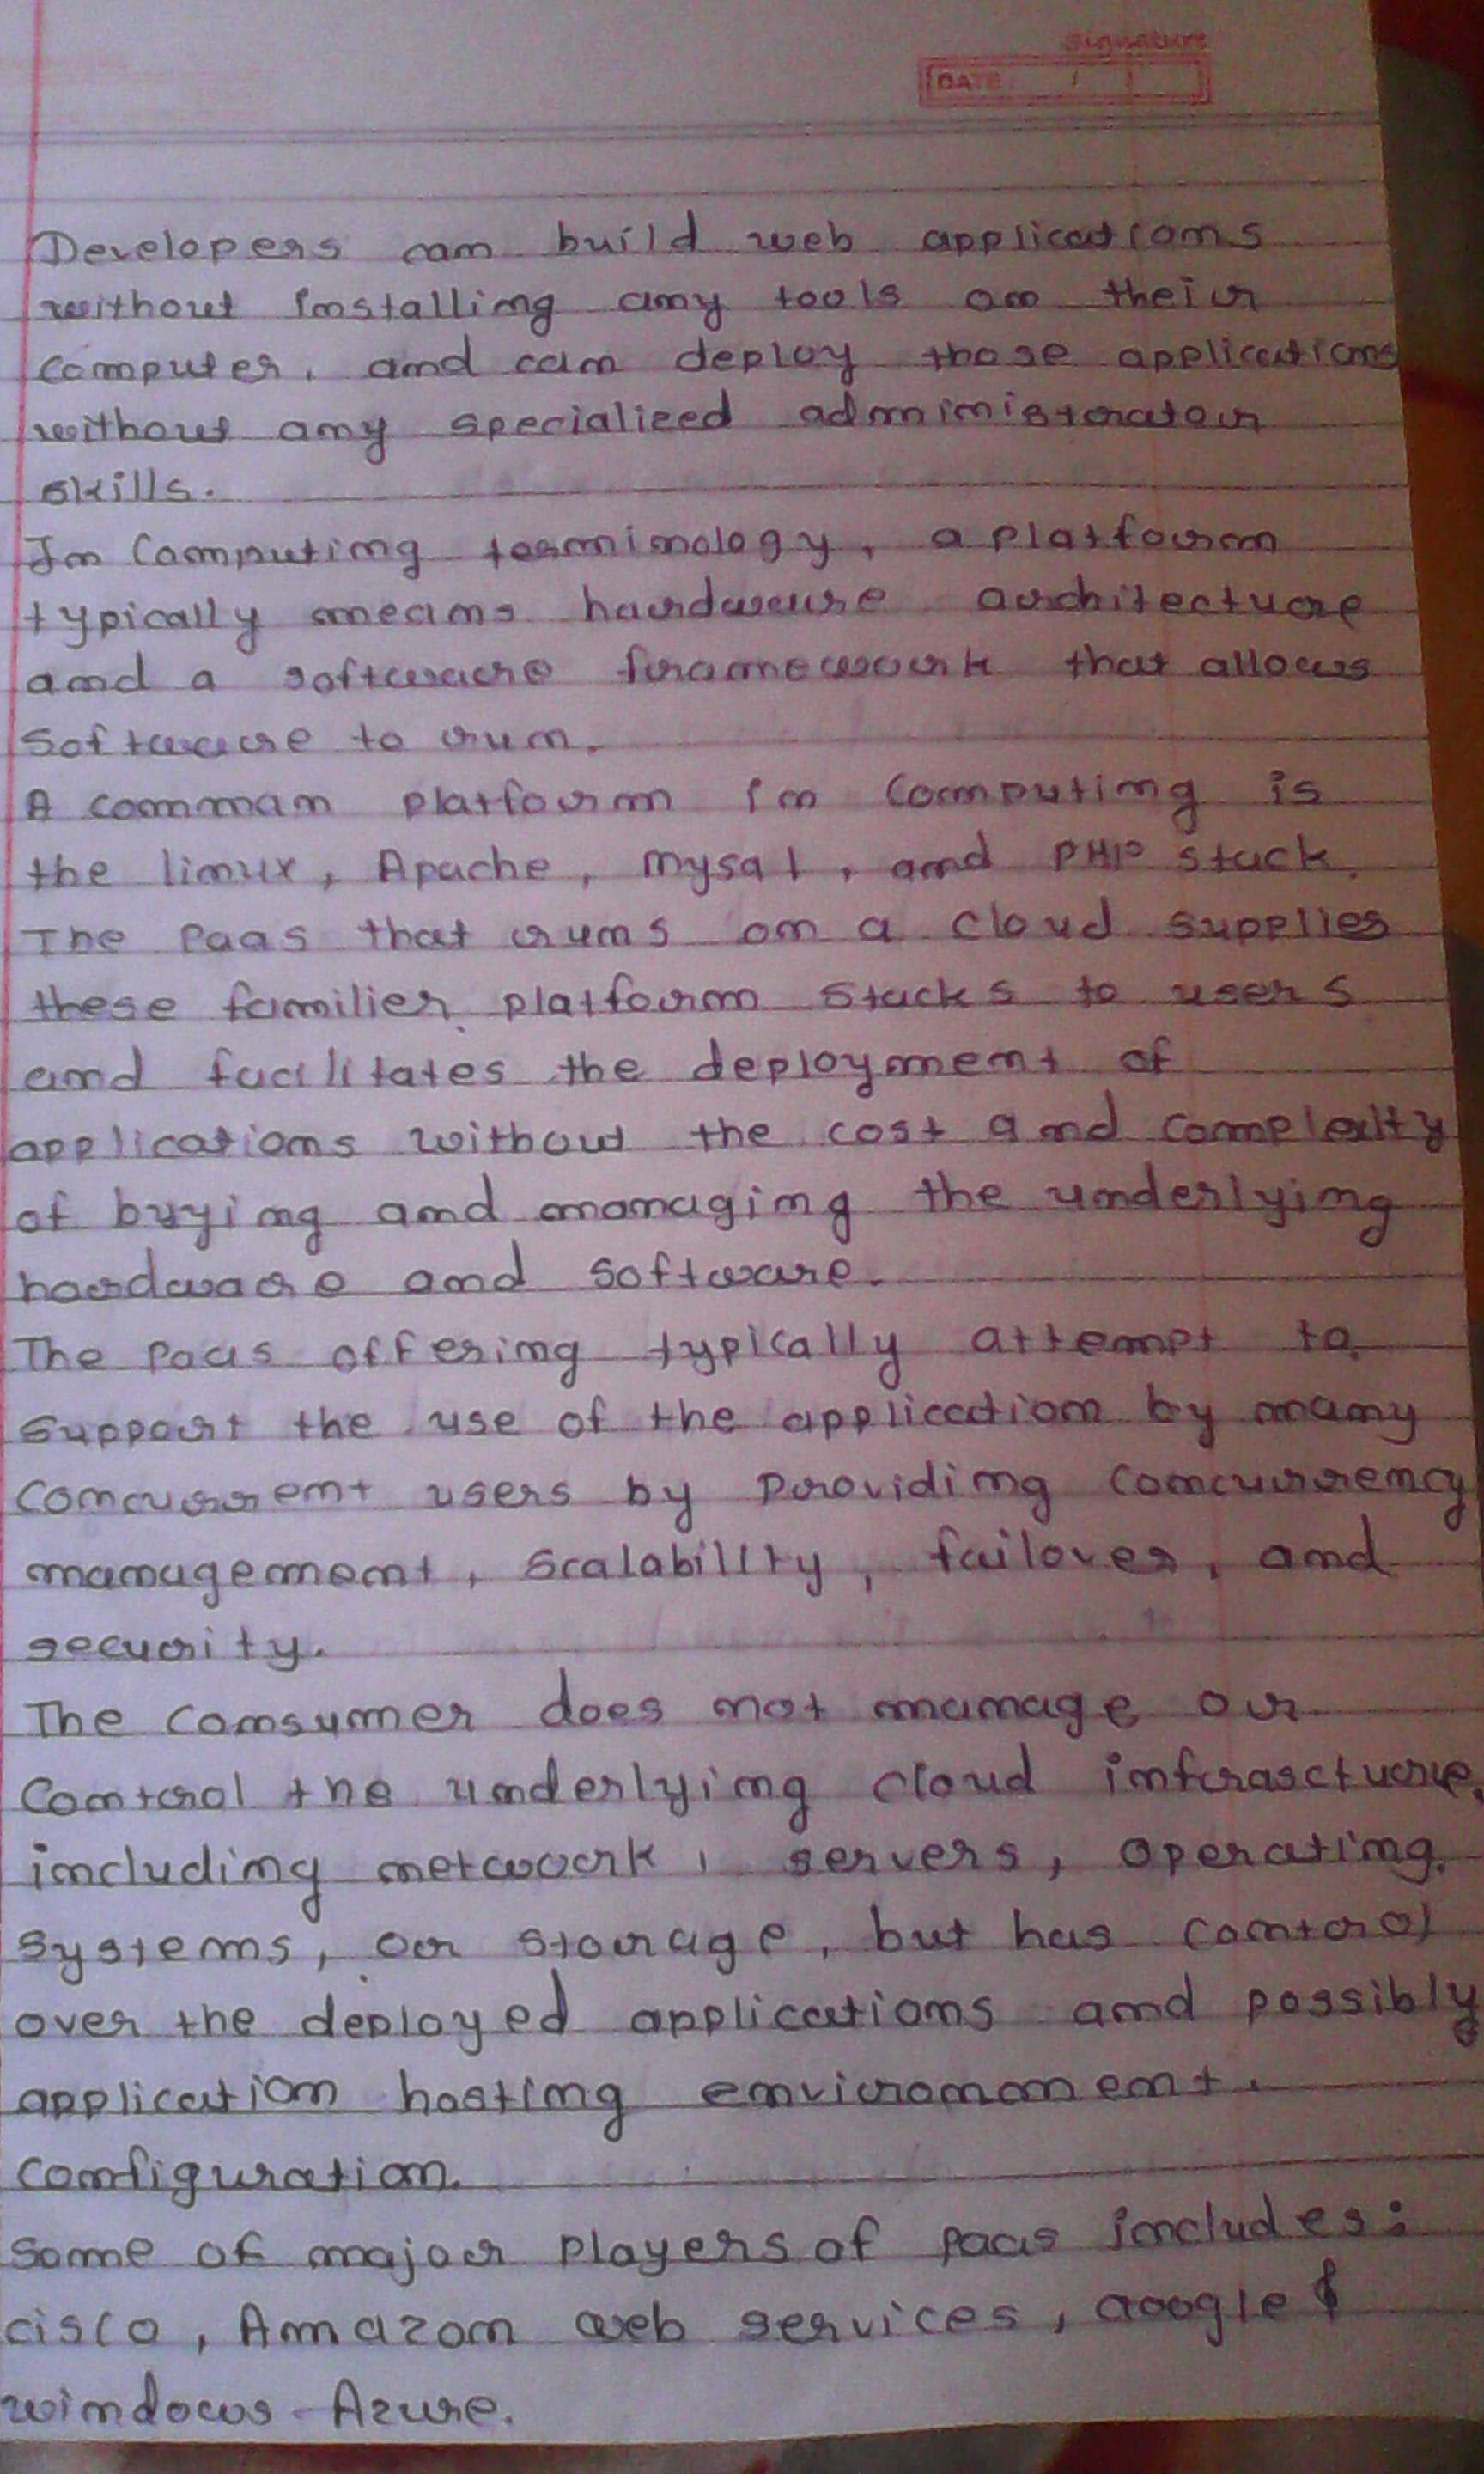 Signature
DATE / /
Developers can build web applications
without installing any tools on their
computer, and can deploy those applications
without any specialized administrator
skills.
In Computing terminology, a platform
typically means hardware architecture
and a software framework that allows
Software to run.
A common platform in Computing is
the linux, Apache, mysql, and PHP stack.
The Paas that runs on a cloud supplies
these familier platform stacks to users
and facilitates the deployment of
applications without the cost and complexity
of buying and managing the underlying
hardware and software.
The Paas offering typically attempt to
support the use of the application by many
concurrent users by providing concurrency
management, scalability, failover, and
security.
The consumer does not manage or
Control the underlying cloud infrascture,
including network, servers, operating
systems, or storage, but has control
over the deployed applications and possibly
application hosting environment.
configuration.
Some of major players of paas includes:
cisco, Amazon web services, Google &
windows Azure.